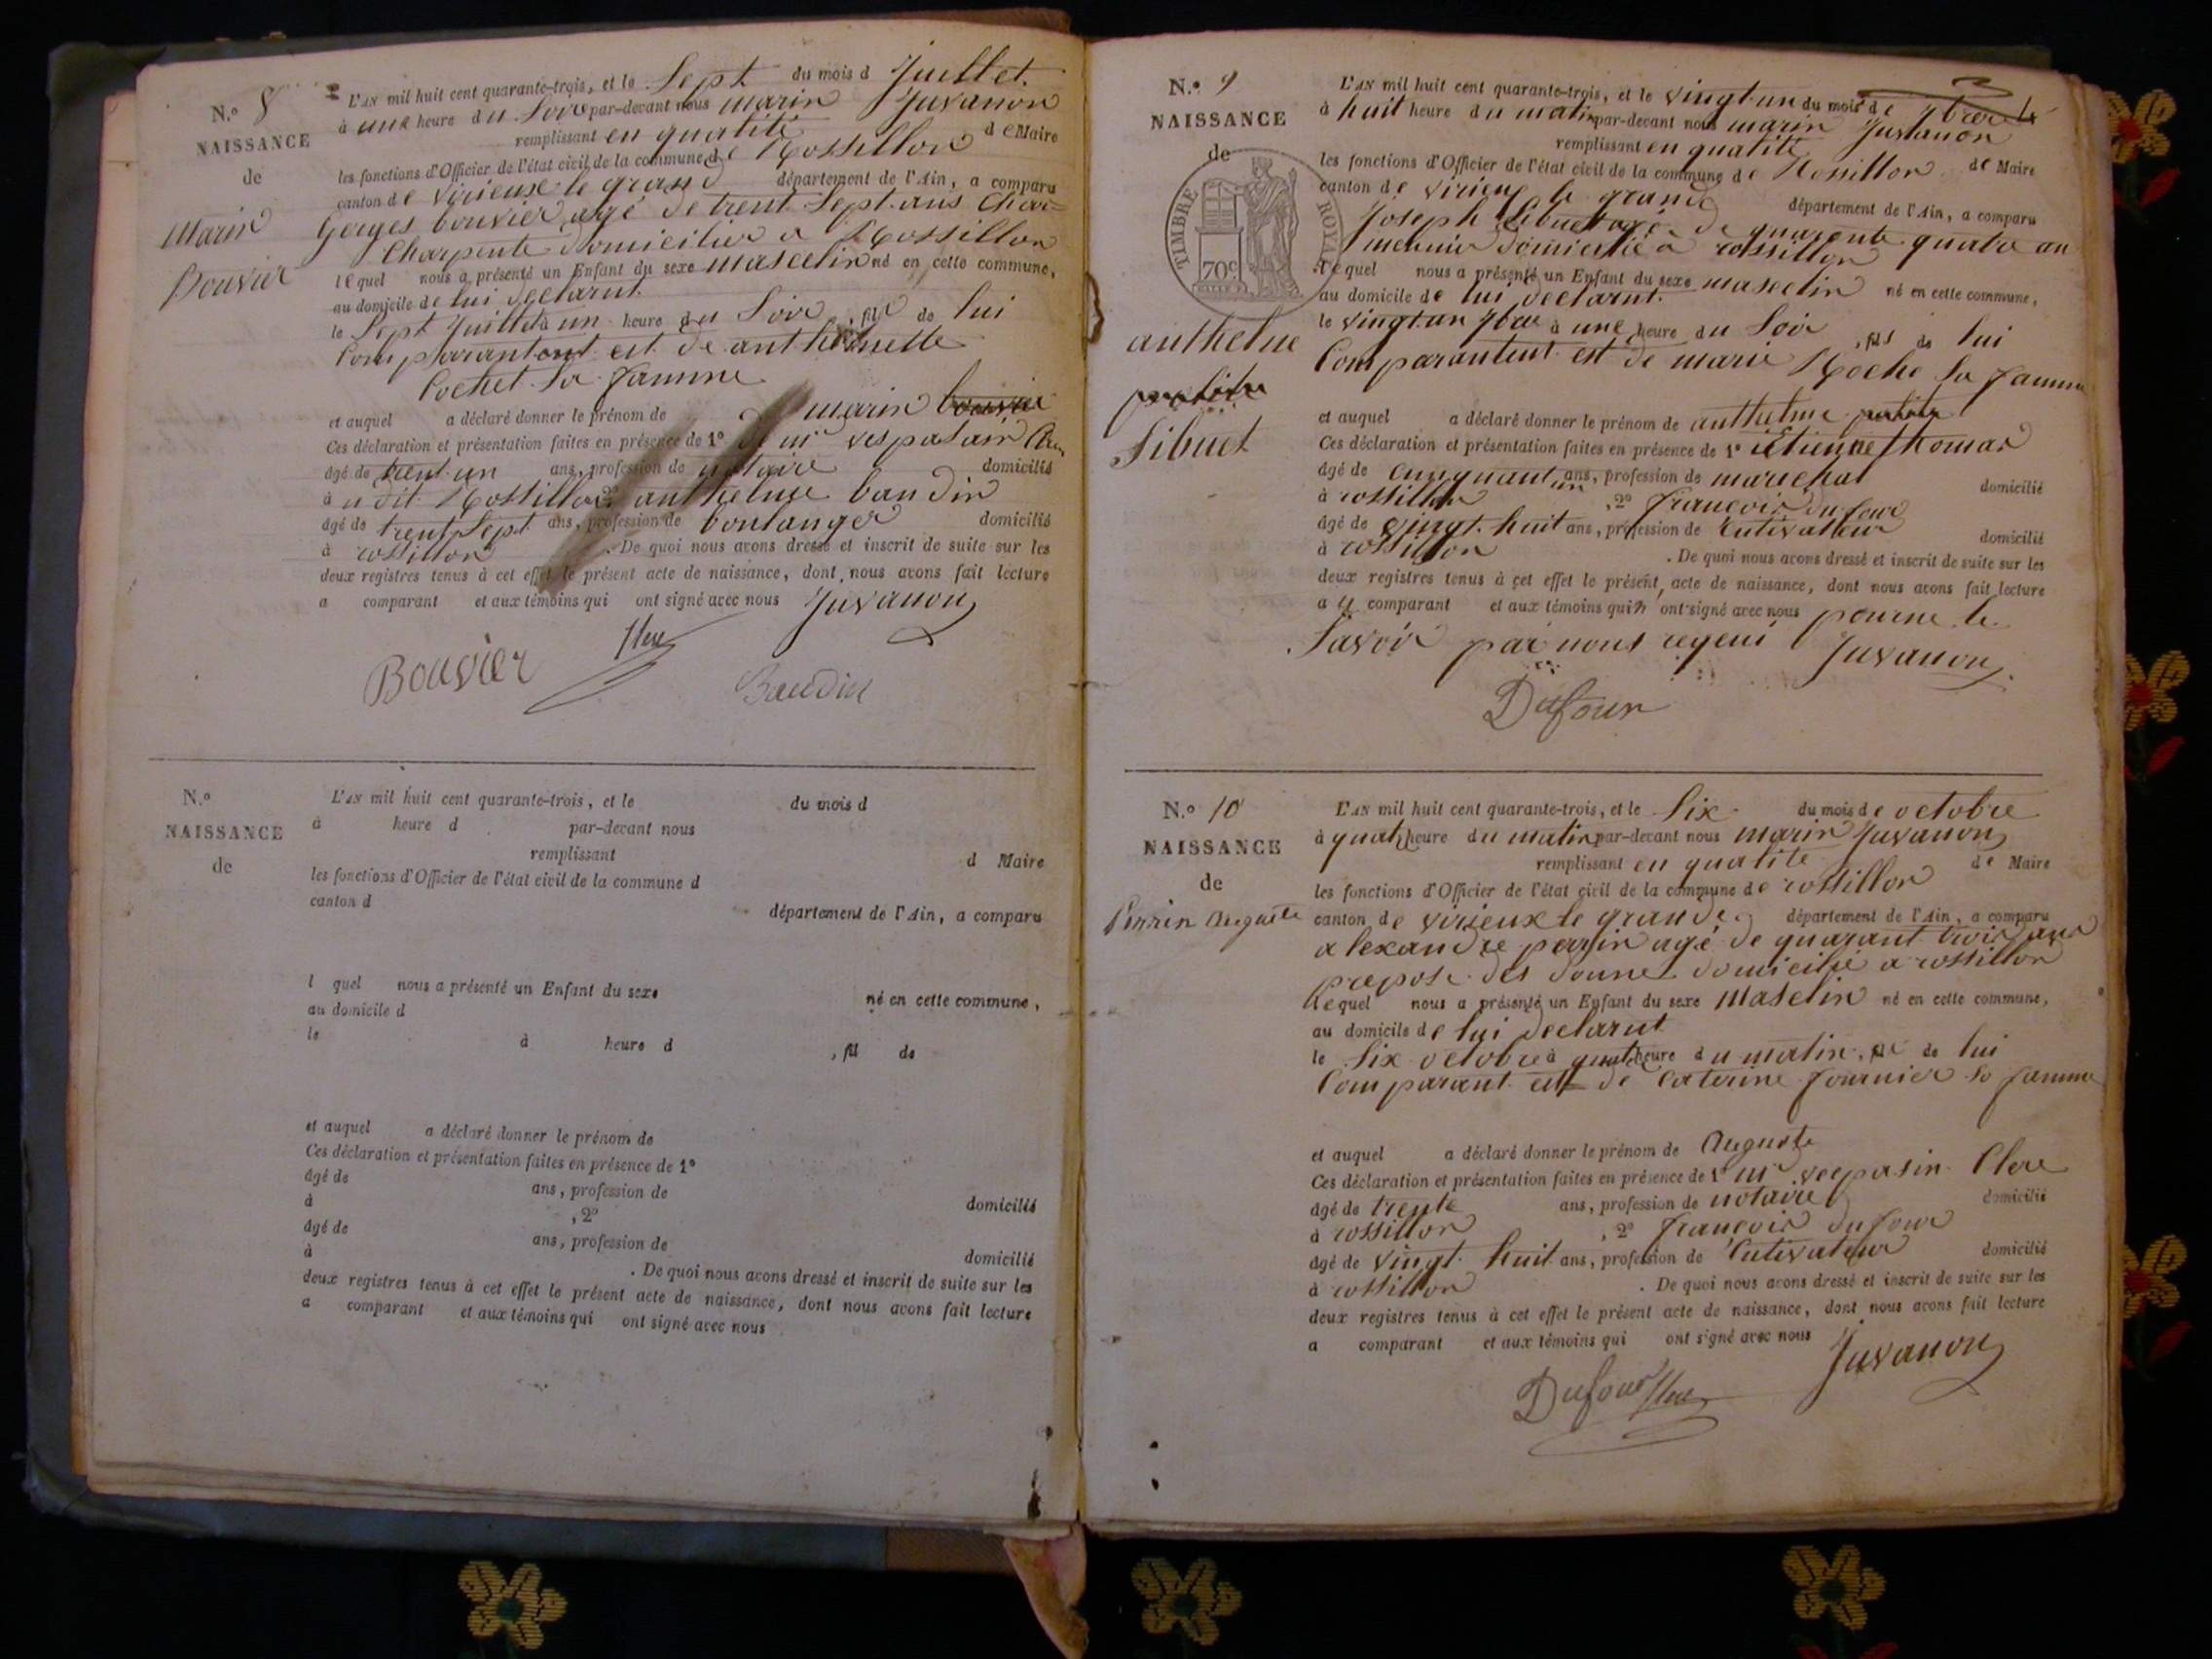 N.o 8
NAISSANCE
de
Marin
Bouvier
L'AN mil huit cent quarante-trois, et le Sept du mois d Juillet.
à une heure du Soir par-devant nous marin Juvanon
remplissant en qualité de Maire
les fonctions d'Officier de l'état civil de la commune de Rossillon
canton de Virieux le grand département de l'Ain, a comparu
Gorges bouvier agé de trent Sept ans Char=
Charpente domicilier a Rossillon
lequel nous a présenté un Enfant du sexe masculin né en cette commune,
au domicile de lui declarent
le Sept Juillet à un heure du Soir, fils de lui
Comparant est de
Cochet Sa famme
et auquel a déclaré donner le prénom de marin bouvier
Ces déclaration et présentation faites en présence de 1o
âgé de trent un ans, profession de notaire domicilié
à udit Rossillon 2o anthelme baudin
âgé de trent Sept ans, profession de boulanger domicilié
à rossillon . De quoi nous avons dressé et inscrit de suite sur les
deux registres tenus à cet effet le présent acte de naissance, dont nous avons fait lecture
a comparant et aux témoins qui ont signé avec nous Juvanon
Bouvier Clerc Baudin
N.o
NAISSANCE
de
L'AN mil huit cent quarante-trois, et le du mois d
à heure d par-devant nous
remplissant d Maire
les fonctions d'Officier de l'état civil de la commune d
canton d département de l'Ain, a comparu
l quel nous a présenté un Enfant du sexe né en cette commune,
au domicile d
le à heure d , fil de
et auquel a déclaré donner le prénom de
Ces déclaration et présentation faites en présence de 1o
âgé de ans, profession de domicilié
à , 2o
âgé de ans, profession de domicilié
à . De quoi nous avons dressé et inscrit de suite sur les
deux registres tenus à cet effet le présent acte de naissance, dont nous avons fait lecture
a comparant et aux témoins qui ont signé avec nous
3
N.o 9
NAISSANCE
de
TIMBRE ROYAL
70c
anthelme
Sibuet
L'AN mil huit cent quarante-trois, et le vingt un du mois de 7bre
à huit heure du matin par-devant nous marin Juvanon
remplissant en qualité de Maire
les fonctions d'Officier de l'état civil de la commune de Rossillon
canton de virieux le grande département de l'Ain, a comparu
Joseph Sibuet agé de quarente quatre an
domicilié a rossillon
lequel nous a présenté un Enfant du sexe masculin né en cette commune,
au domicile de lui declarent.
le vingt un 7bre à une heure du Soir, fils de lui
Comparantent est de marie Roche Sa famme
et auquel a déclaré donner le prénom de anthelme
Ces déclaration et présentation faites en présence de 1o Etienne thomas
âgé de ans, profession de marechal domicilié
à rossillon , 2o francois dufour
âgé de vingt huit ans, profession de Cutivateur domicilié
à rossillon . De quoi nous avons dressé et inscrit de suite sur les
deux registres tenus à cet effet le présent acte de naissance, dont nous avons fait lecture
au comparant et aux témoins qui n ont signé avec nous pour ne le
Savoir par nous Juvanon
Dufour
N.o 10
NAISSANCE
de
Perrin Auguste
L'AN mil huit cent quarante-trois, et le Six du mois de octobre
à quatre heure du matin par-devant nous marin Juvanon
remplissant en qualité de Maire
les fonctions d'Officier de l'état civil de la commune de rossillon
canton de virieux le grande département de l'Ain, a comparu
alexandre perrin agé de quarant trois ans
prepose des doune domicilié a rossillon
lequel nous a présenté un Enfant du sexe Maselin né en cette commune,
au domicile de lui declarent
le Six octobre à quatre heure du matin, fil de lui
Comparant est de Caterine fournier Sa famme
et auquel a déclaré donner le prénom de Auguste
Ces déclaration et présentation faites en présence de 1o mr vespasin Clerc
âgé de trente ans, profession de notaire domicilié
à rossillon , 2o francois dufour
âgé de vingt huit ans, profession de Cutivateur domicilié
à rossillon . De quoi nous avons dressé et inscrit de suite sur les
deux registres tenus à cet effet le présent acte de naissance, dont nous avons fait lecture
a comparant et aux témoins qui ont signé avec nous Juvanon
Dufour Clerc